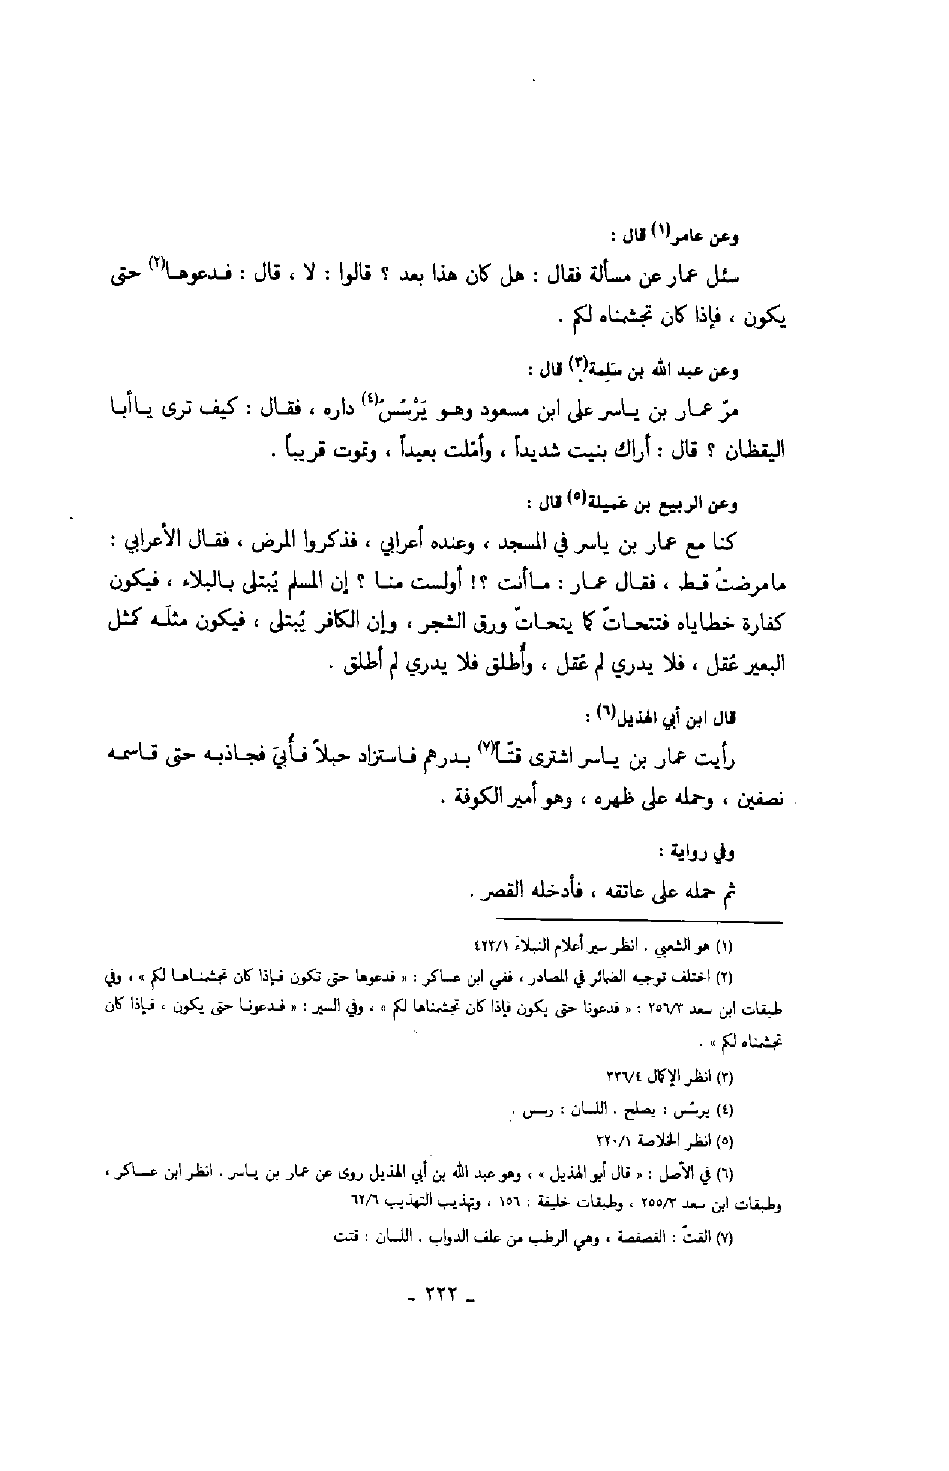 وعن عامر(١) قال :
سئل عمار عن مسألة فقال : هل كان هذا بعد ؟ قالوا : لا ، قال : فـدعوهـا(٢) حتى
يكون ، فإذا كان تجشمناه لكم .
وعن عبد الله بن سَلِمة(٣) قال :
مرّ عمـار بن يـاسر على ابن مسعود وهـو يَرْسُسُ(٤) داره ، فقـال : كيف ترى يـاأبـا
اليقظان ؟ قال : أراك بنيت شديداً ، وأمّلت بعيداً ، وتموت قريباً .
وعن الربيع بن عَميلة(٥) قال :
كنا مع عمار بن ياسر في المسجد ، وعنده أعرابي ، فذكروا المرض ، فقـال الأعرابي :
مامرضتُ قـط ، فقـال عمـار : مـاأنت ؟! أولست منـا ؟ إن المسلم يُبتلى بـالبلاء ، فيكون
كفارة خطاياه فتتحاتّ كما يتحـاتّ ورق الشجر ، وإن الكافر يُبتلى ، فيكون مثلـه كمثل
البعير عُقل ، فلا يدري لم عُقل ، وأُطلق فلا يدري لم أُطلق .
قال ابن أبي الهذيل(٦) :
رأيت عمار بن يـاسر اشترى قتّـاً(٧) بـدرهم فـاستزاد حبلاً فـأبىَ فجـاذبـه حتى قـاسمـه
نصفين ، وحمله على ظهره ، وهو أمير الكوفة .
وفي رواية :
ثم حمله على عاتقه ، فأدخله القصر .
(١) هو الشعبي . انظر سير أعلام النبلاء ٤٢٢/١
(٢) اختلف توجيه الضمائر في المصادر ، ففي ابن عسـاكر : « فدعوها حتى تكون فـإذا كان تجشمنـاهـا لكم » ، وفي
طبقات ابن سعد ٢٥٦/٣ : « فدعونا حتى يكون فإذا كان تجشمناها لكم » ، وفي السير : « فـدعونـا حتى يكون ، فـإذا كان
تجشمناه لكم » .
(٣) انظر الإكمال ٣٣٦/٤
(٤) يرسُس : يصلح . اللسان : رسس .
(٥) انظر الخلاصة ٢٢٠/١
(٦) في الأصل : « قال أبو الهذيل » ، وهو عبد الله بن أبي الهذيل روى عن عمار بن يـاسر . انظر ابن عسـاكر ،
وطبقات ابن سعد ٢٥٥/٣ ، وطبقات خليفة : ١٥٦ ، وتهذيب التهذيب ٦٢/٦
(٧) القتّ : الفصفصة ، وهي الرطب من علف الدواب . اللسان : قتت
ـ ٢٢٢ ـ